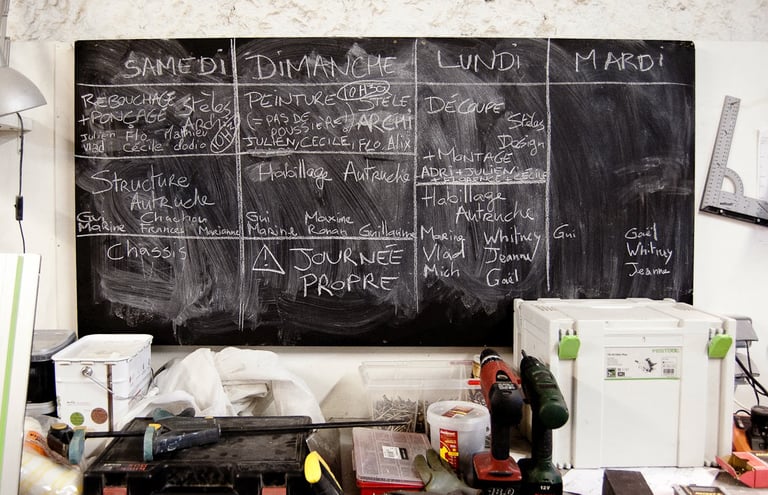 SAMEDI
REBOUCHAGE Stèles
+ PONÇAGE Archi
Julien Flo Mathieu
Vlad Cécile dodio
Structure
Autruche
Gui Chachou
Marine Frances Marianne
Chassis
DIMANCHE
PEINTURE 10H30 STÈLE
(= PAS DE POUSSIÈRE) ARCHI
JULIEN, CÉCILE, FLO, Alix
Habillage Autruche
Gui Maxime
Marine Ronan Guillaume
⚠ JOURNÉE
PROPRE
LUNDI
DÉCOUPE
Stèles
Design
+ MONTAGE
ADRI + JULIEN
+ FLORENCE + CÉCILE
Habillage
Autruche
Marine Whitney
Vlad Jeanne
Mich Gaël
MARDI
Gui Gaël
Whitney
Jeanne
FESTOOL
12V